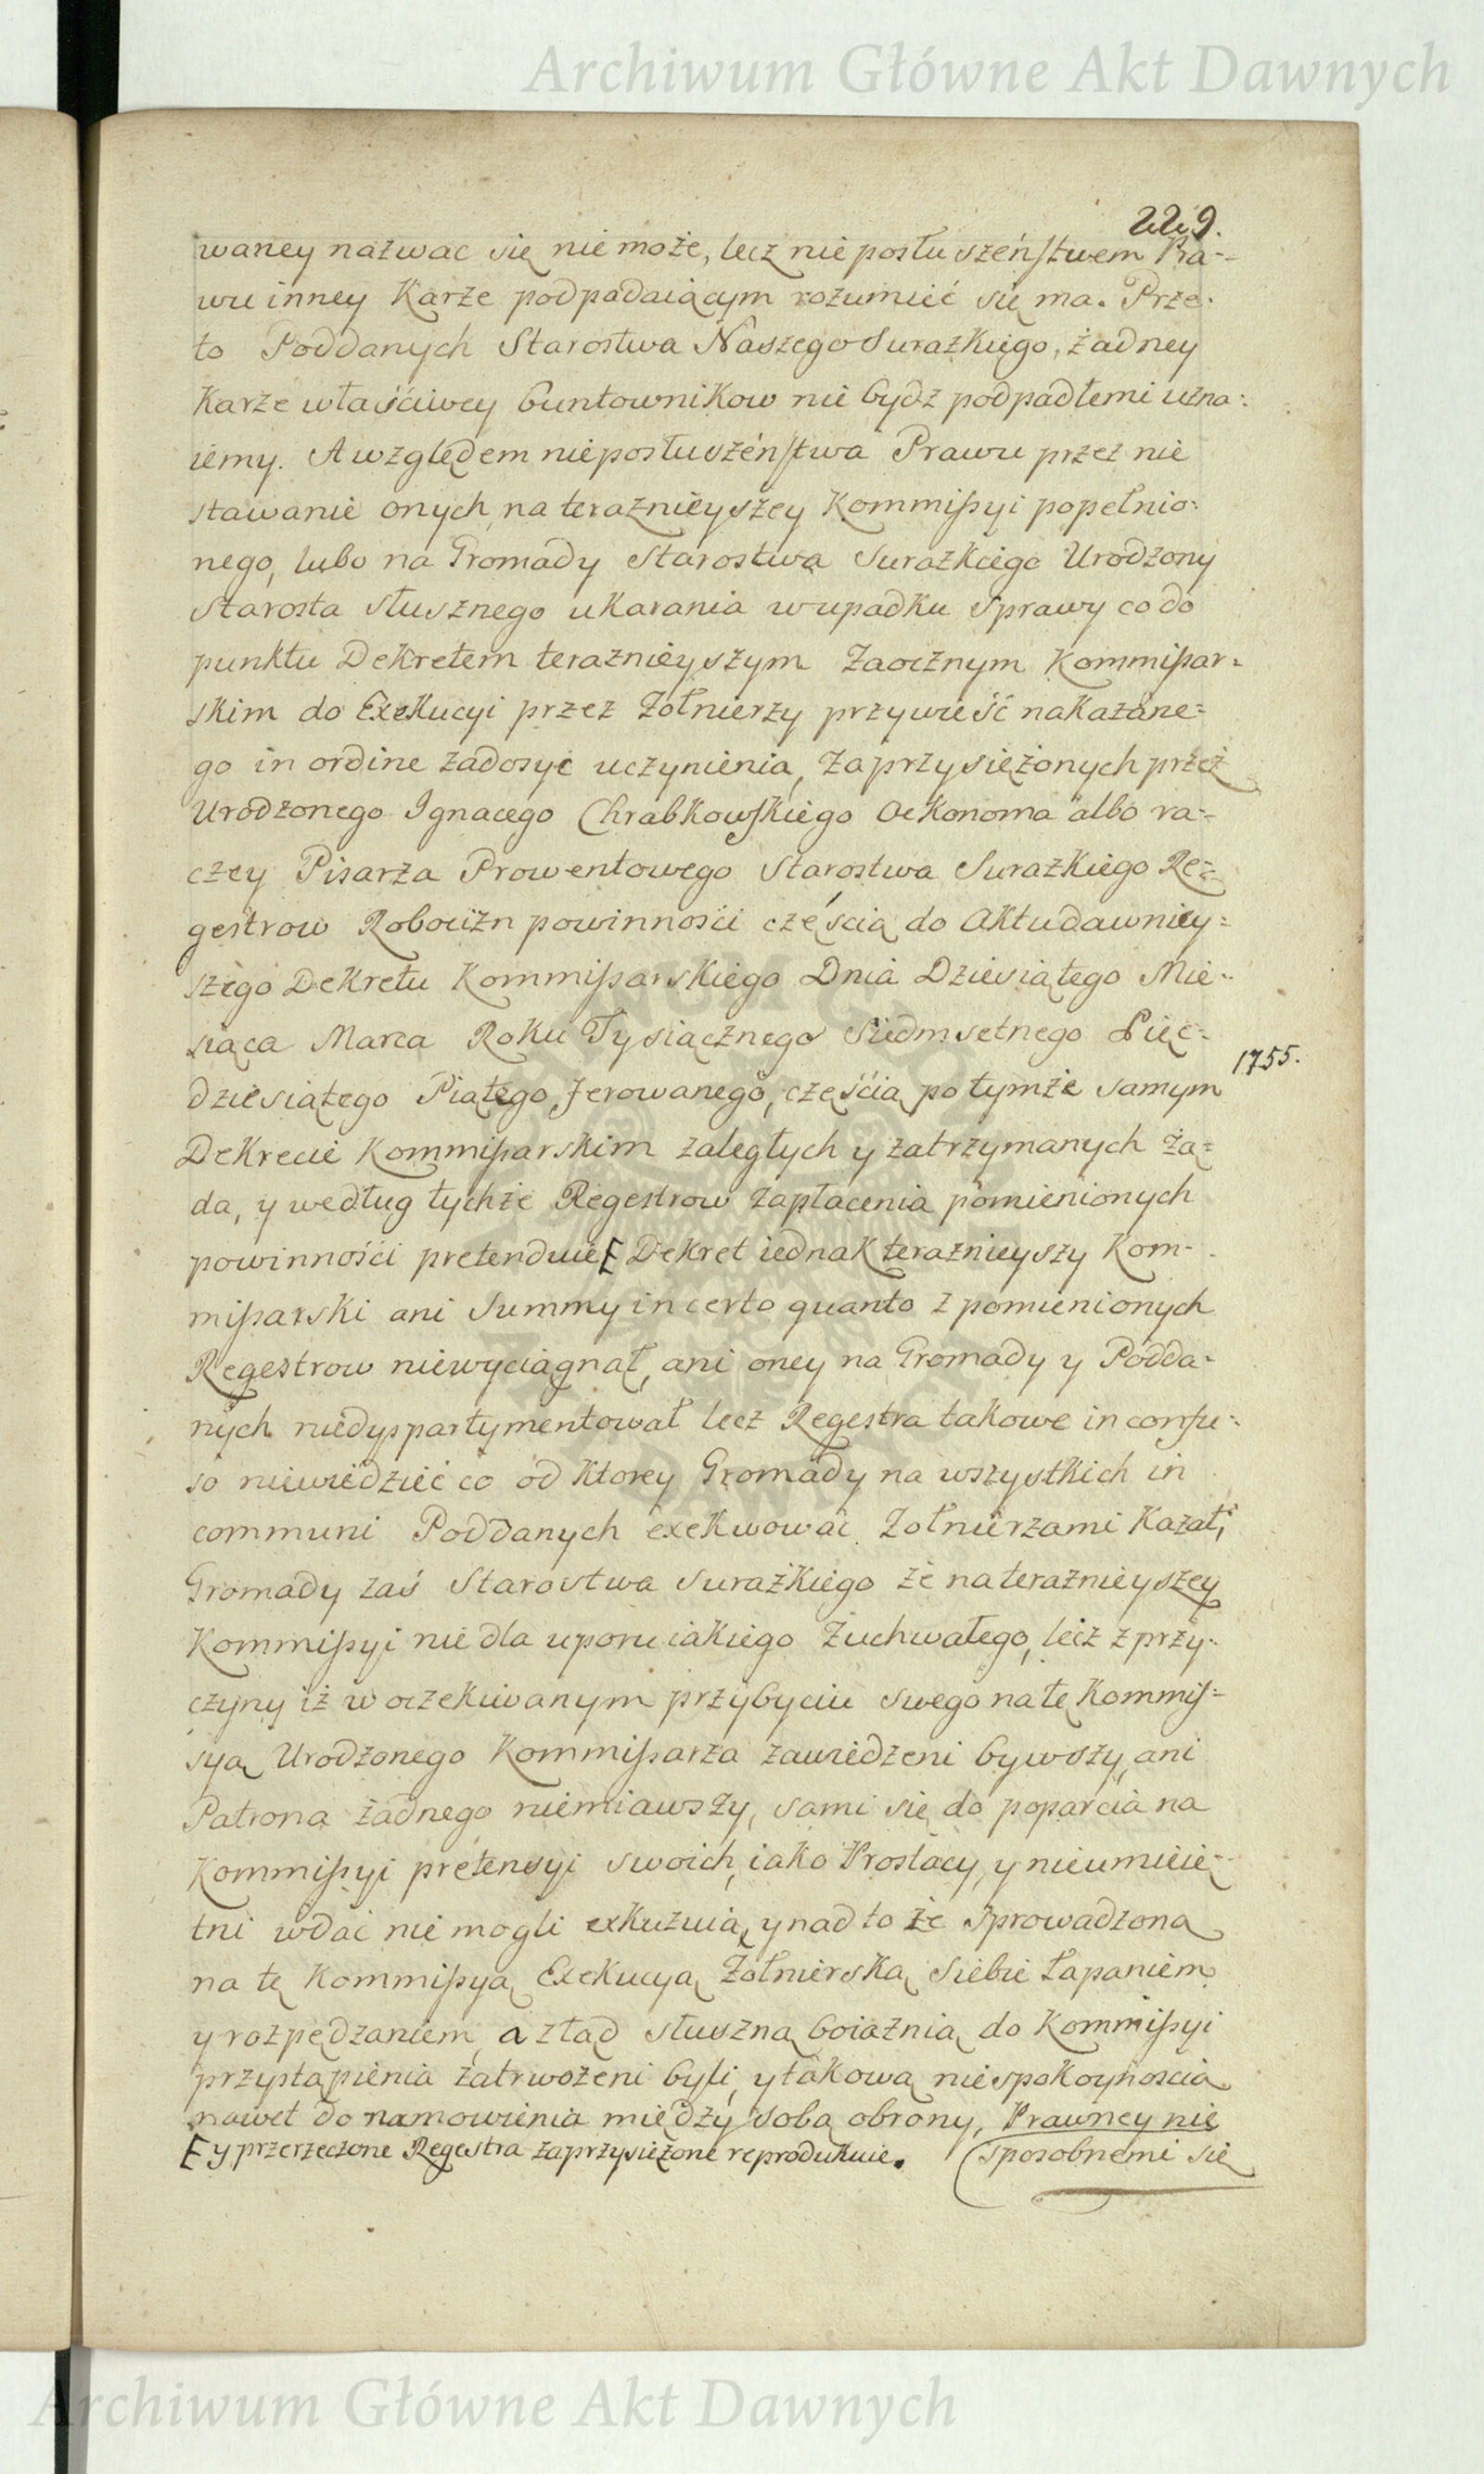 Archiwum Główne Akt Dawnych
229.
waney nazwac się nie może, lecz nieposłuszeństwem Pra-
wu inney Karze podpadaiącym rozumieć się ma. Prze-
to Poddanych Starostwa Naszego Surazkiego, żadney
Karze właściwey buntownikow nie bydz podpadłemi uzna-
iemy. A względem nieposłuszeństwa Prawu przez nie
stawanie onych, na teraznieyszey Kommissyi popełnio-
nego, lubo na Gromady Starostwa Surazkiego Urodzony
Starosta słusznego ukarania w upadku Sprawy co do
punktu Dekretem teraznieyszym Zaocznym Kommissar-
skim do Exekucyi przez Zołnierzy przywieść nakazane-
go in ordine zadosyc uczynienia, Zaprzysiężonych przez
Urodzonego Ignacego Chrabkowskiego Oekonoma albo ra-
czey Pisarza Prowentowego Starostwa Surazkiego Re-
gestrow Robocizn powinności częścią do Aktu dawniey-
szego Dekretu Kommissarskiego Dnia Dziesiątego Mie-
siąca Marca Roku Tysiącznego Siedmsetnego Pięć-
1755.
dziesiątego Piątego ferowanego, częścią po tymże samym
Dekrecie Kommissarskim zaległych y zatrzymanych żą-
da, y według tychże Regestrow zapłacenia pomienionych
powinności pretenduie [ Dekret iednak teraznieyszy Kom-
missarski ani Summy in certo quanto z pomienionych
Regestrow niewyciągnął, ani oney na Gromady y Podda-
nych niedyspartymentował lecz Regestra takowe in confu-
so niewiedzieć co od Ktorey Gromady na wszystkich in
communi Poddanych exekwować Zołnierzami Kazał,
Gromady zaś Starostwa Surazkiego że na teraznieyszey
Kommissyi nie dla uporu iakiego Zuchwałego, lecz z przy-
czyny iż w oczekiwanym przybyciu swego na tę Kommis-
syą Urodzonego Kommissarza zawiedzeni bywszy, ani
Patrona żadnego niemiawszy, sami się do poparcia na
Kommissyi pretensyi swoich, iako Prostacy, y nieumieię-
tni wdać nie mogli exkuzuią, y nad to że Sprowadzoną
na tę Kommissyą Exekucyą Zołnierską Siebie łapaniem
y rozpędzaniem, a ztąd słuszną boiaznią do Kommissyi
przystąpienia zatrwożeni byli, y takową niespokoynoscią
nawet do namowienia między sobą obrony, Prawney nie
[ y przerzeczone Regestra zaprzysiężone reprodukuie. (sposobnemi się
Archiwum Główne Akt Dawnych